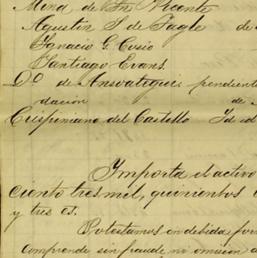 Mina de Sn. Vicente
Agustin S. de Tagle de
Ignacio G. Cosio
Santiago Evans.
D.o de Ansoategui, pendiente
dacion de
Crispiniano del Castillo Id id
Importa el activo
ciento tres mil, quinientos
y tres cs.
Protestamos en debida for
comprende sin fraude, ni omision a